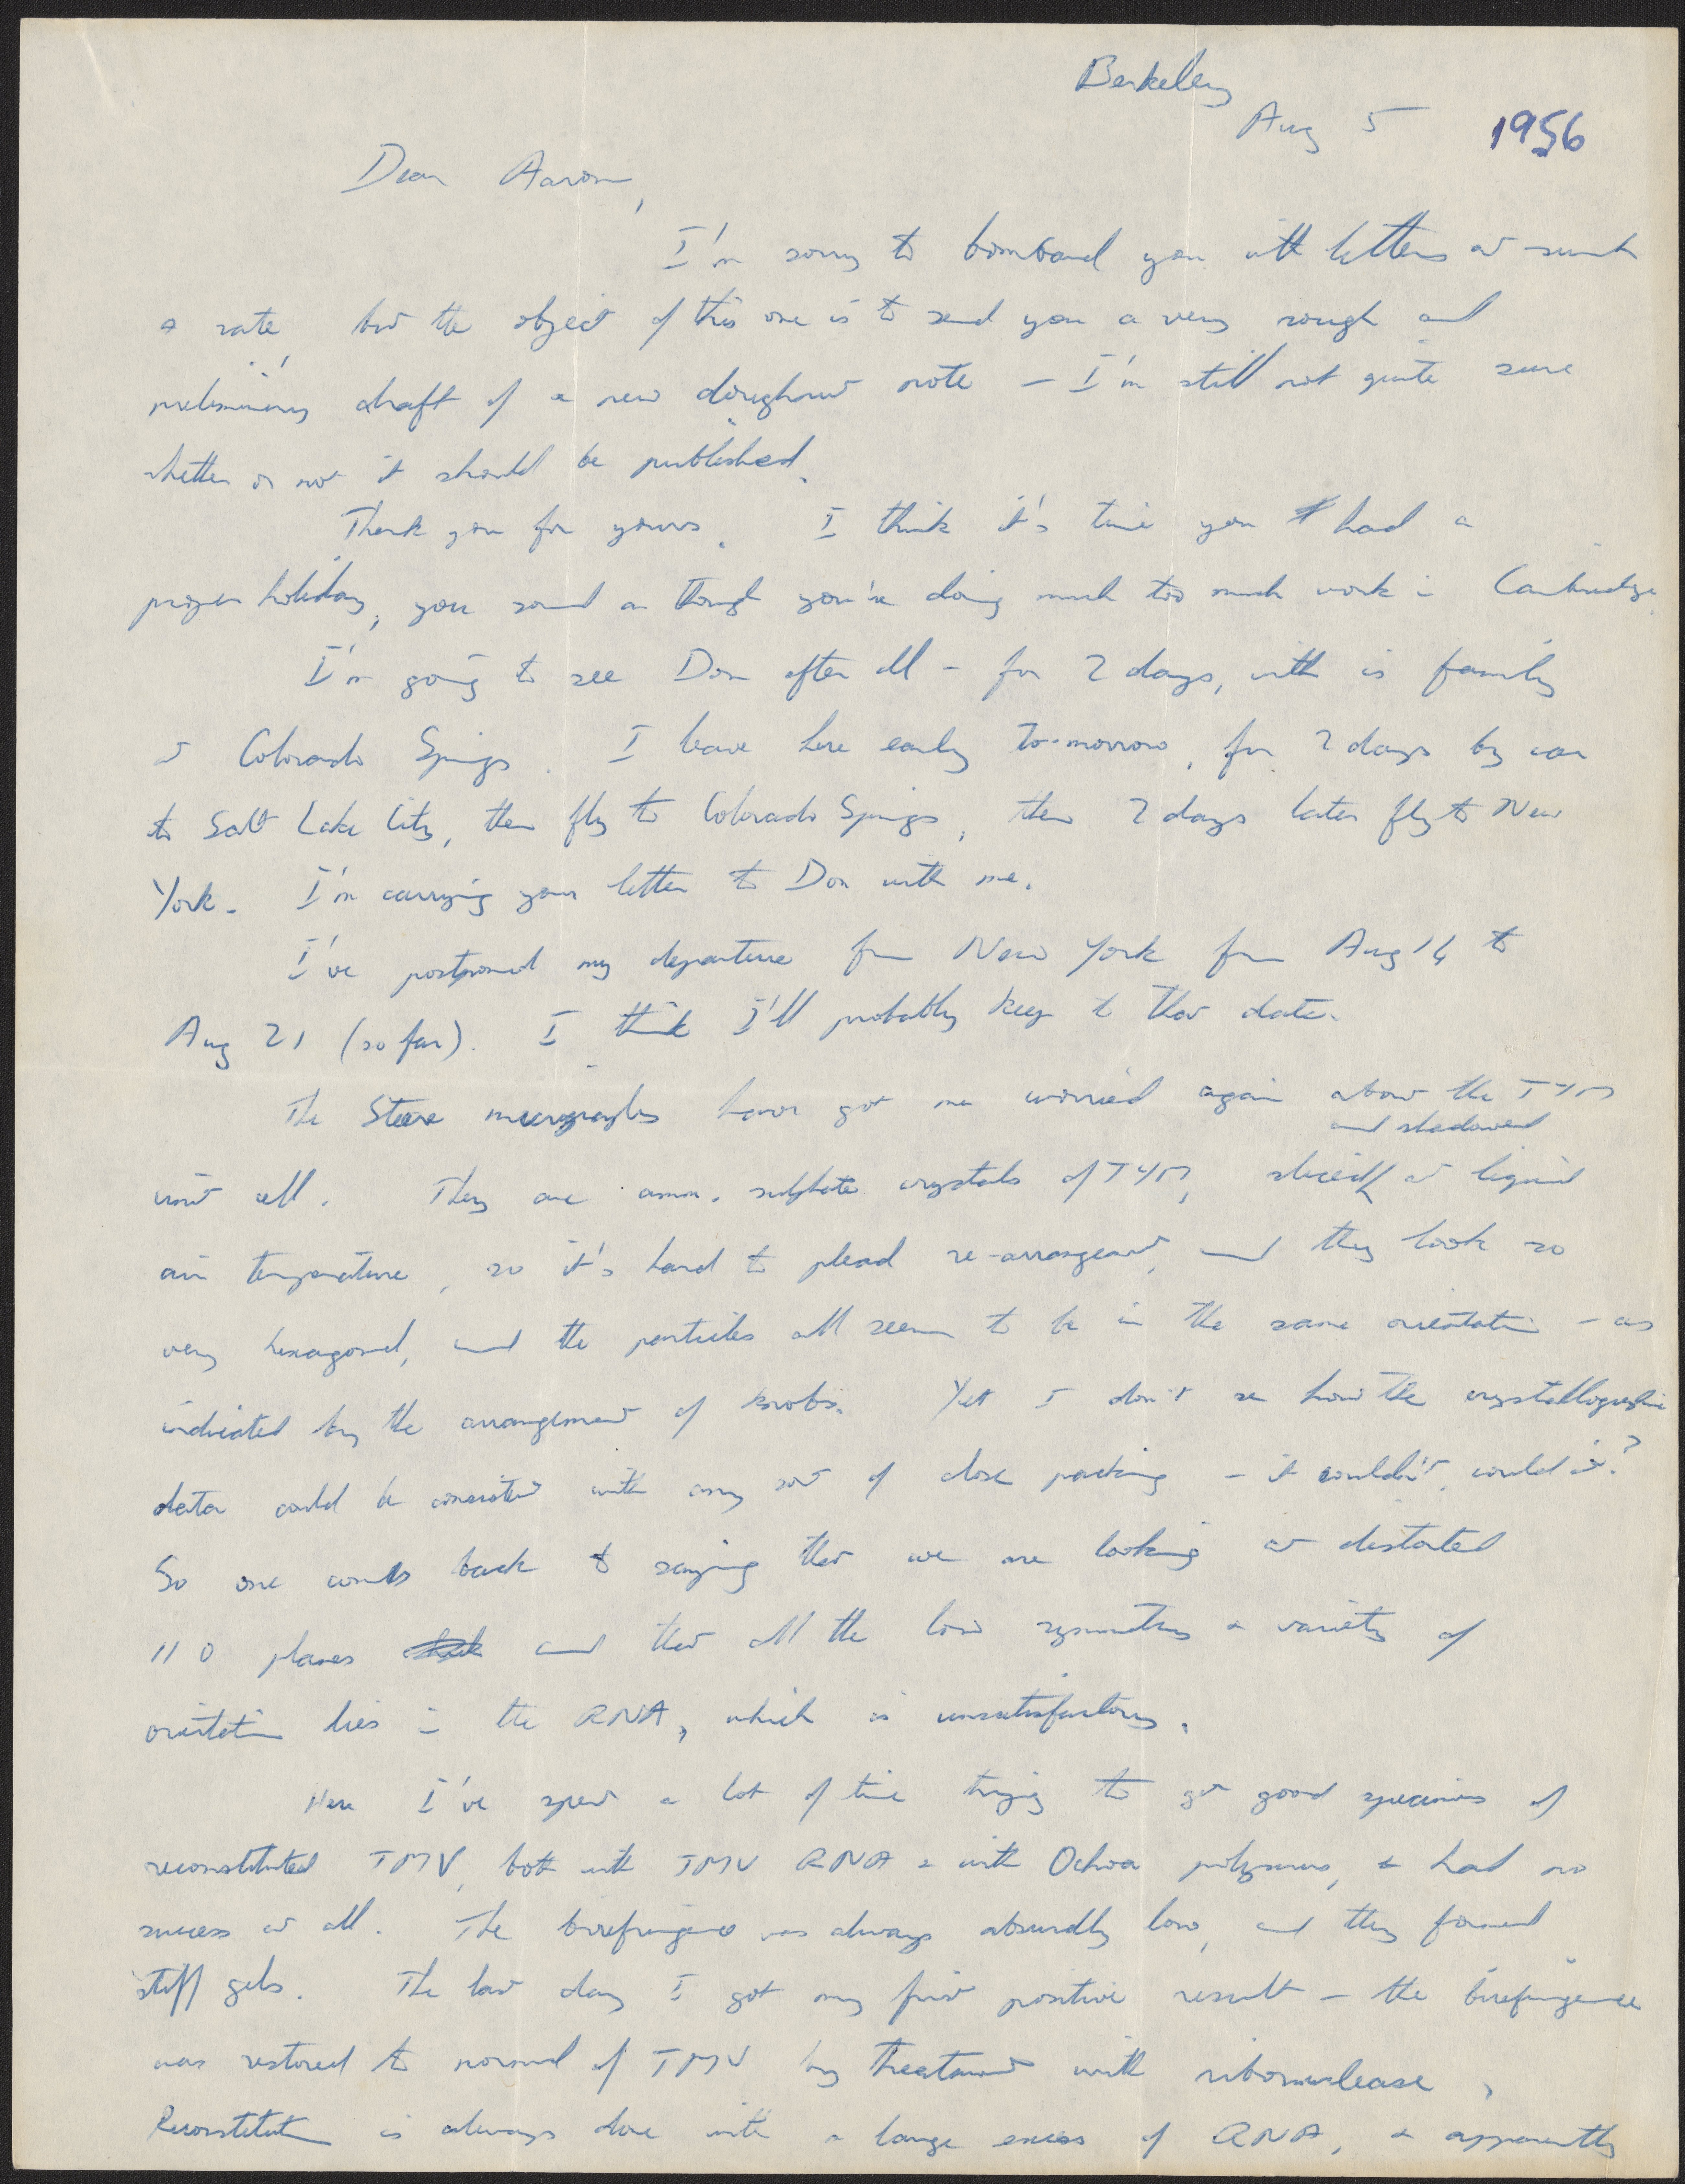 Berkeley
Aug 5 1956
Dear Aaron,
I'm sorry to bombard you with letters at such
a rate but the object of this one is to send you a very rough and
preliminary draft of a new doughnut note – I'm still not quite sure
whether or not it should be published.
Thank you for yours. I think it's time you had a
proper holiday, you sound as though you're doing much too much work in Cambridge.
I'm going to see Don after all – for 2 days, with is family
at Colorado Springs. I leave here early to-morrow, for 2 days by car
to Salt Lake City, then fly to Colorado Springs, then 2 days later fly to New
York. I'm carrying your letter to Don with me.
I've postponed my departure from New York from Aug 14 to
Aug 21 (so far). I think I'll probably keep to that date.
The Steere micrographs have got me worried again about the TYM
and shadowed
unit cell. They are amm. sulphate crystals of TYM, sliced at liquid
air temperature, so it's hard to plead re-arrangement, and they look so
very hexagonal, and the particles all seem to be in the same orientation – as
indicated by the arrangement of knobs. Yet I don't see how the crystallographic
data could be consistent with any sort of close packing – it couldn't, could it?
So one comes back to saying that we are looking at distorted
110 planes and that all the low symmetry & variety of
orientation lies in the RNA, which is unsatisfactory.
Here I've spent a lot of time trying to get good specimens of
reconstituted TMV, both with TMV RNA & with Ochoa polymers, & had no
success at all. The birefringence was always absurdly low, and they formed
stiff gels. The last day I got my first positive result – the birefringence
was restored to normal of TMV by treatment with ribonuclease.
Reconstitution is always done with a large excess of RNA, & apparently